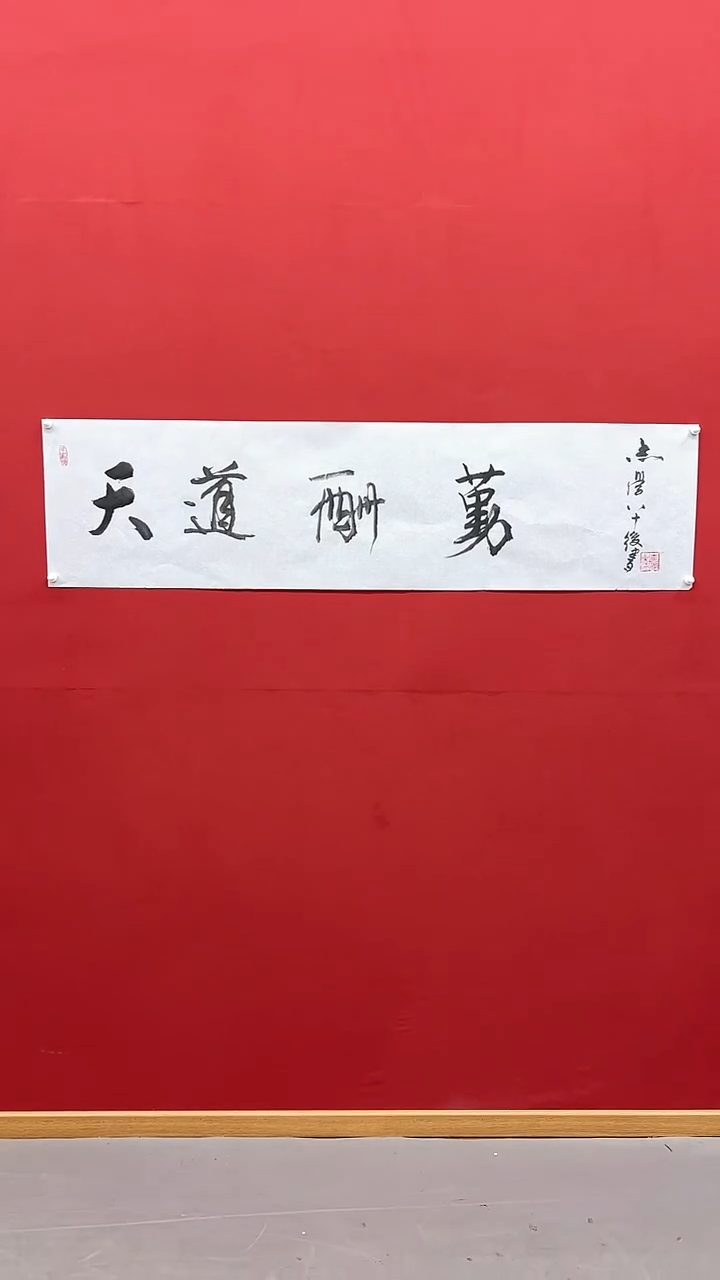 天道酬勤
八十後書